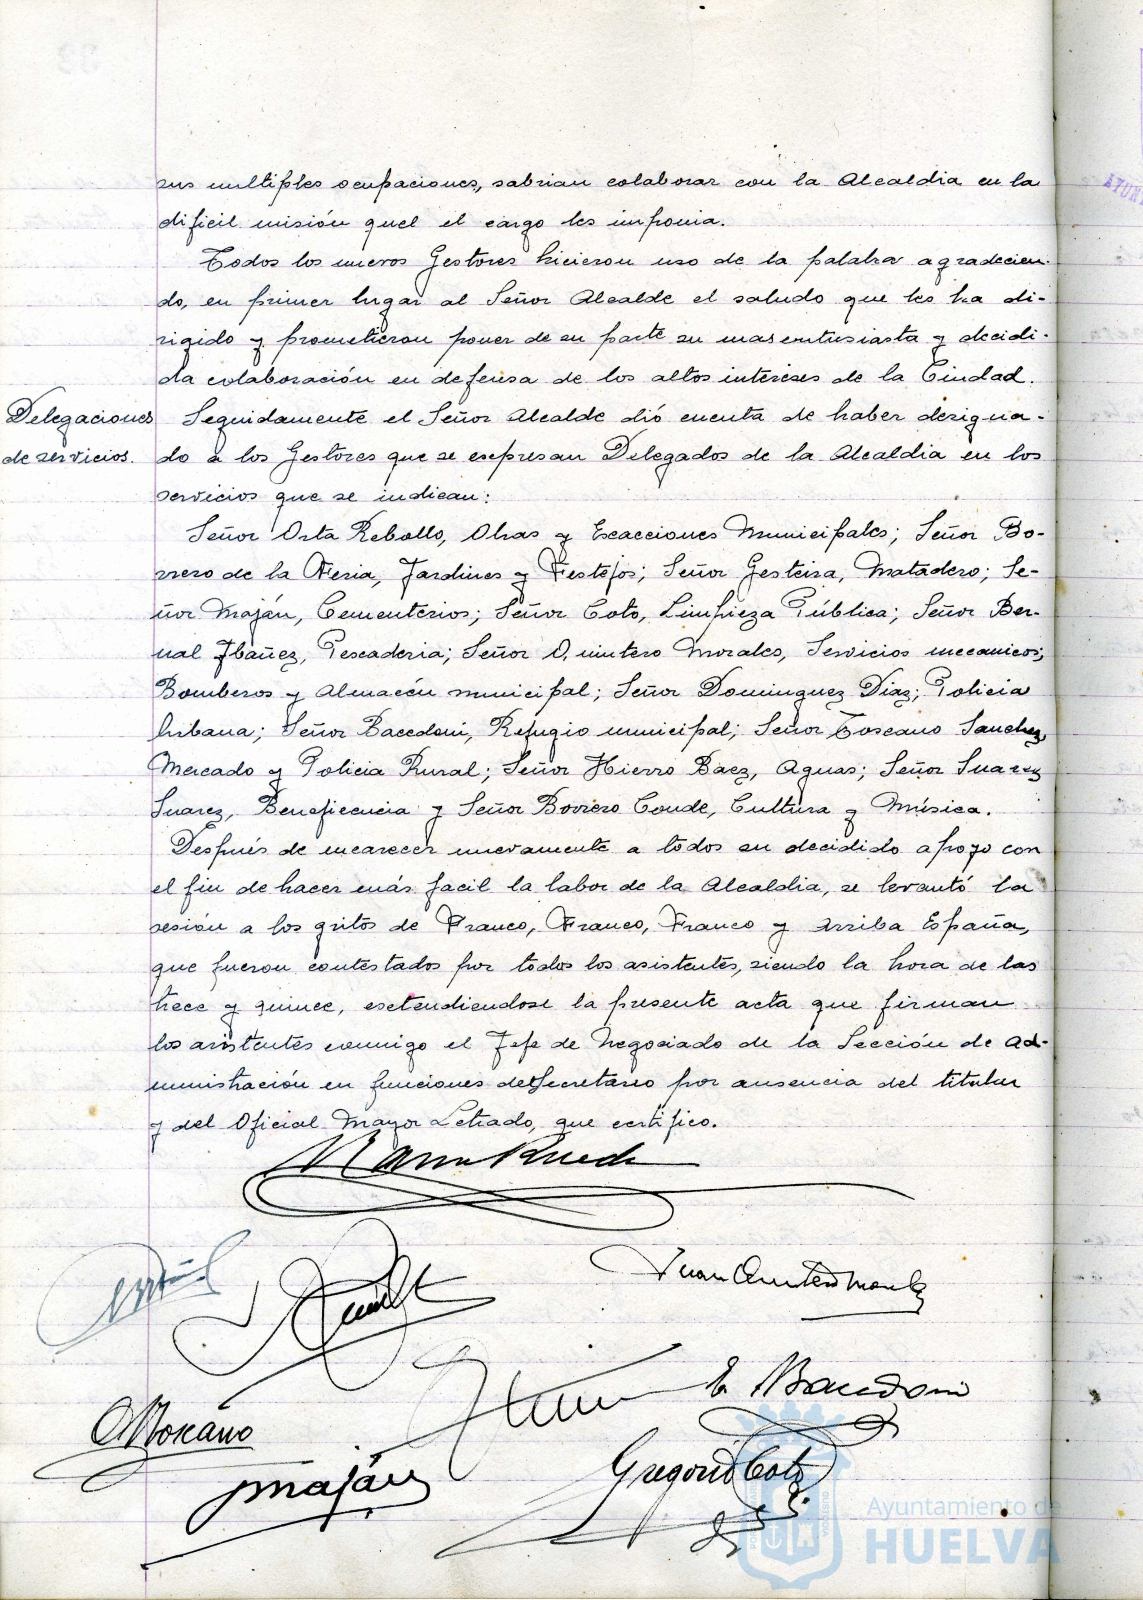 sus multiples ocupaciones, sabrian colaborar con la Alcaldia en la
dificil misión quel el cargo les imponia.
Todos los nuevos Gestores hicieron uso de la palabra agradecien-
do, en primer lugar al Señor Alcalde el saludo que les ha di-
rigido y prometieron poner de su parte su mas entusiasta y decidi-
da colaboración en defensa de los altos intereses de la Ciudad.
Delegaciones
de servicios.
Seguidamente el Señor Alcalde dió cuenta de haber designa-
do a los Gestores que se expresan Delegados de la Alcaldia en los
servicios que se indican:
Señor Orta Rebollo, Obras y Exacciones Municipales; Señor Bo-
rrero de la Feria, Jardines y Festejos; Señor Gesteira, Matadero; Se-
ñor Maján, Cementerios; Señor Coto, Limpieza Pública; Señor Ber-
nal Ibañez, Pescaderia; Señor Quintero Morales, Servicios mecanicos;
Bomberos y Almacén municipal; Señor Dominguez Diaz; Policia
Urbana; Señor Bacedoni, Refugio municipal; Señor Toscano Sanchez,
Mercado y Policia Rural; Señor Hierro Baez, Aguas; Señor Suarez
Suarez, Beneficencia y Señor Borrero Conde, Cultura y Música.
Después de encarecer nuevamente a todos su decidido apoyo con
el fin de hacer más facil la labor de la Alcaldia, se levantó la
sesión a los gritos de Franco, Franco, Franco y Arriba España,
que fueron contestados por todos los asistentes, siendo la hora de las
trece y quince, extendiendose la presente acta que firman
los asistentes conmigo el Jefe de Negociado de la Sección de Ad-
ministración en funciones de Secretario por ausencia del titular
y del Oficial Mayor Letrado, que certifico.
Juan Quintero Morales
E. Bacedoni
Toscano
Gregorio Coto
Maján
Ayuntamiento de
HUELVA